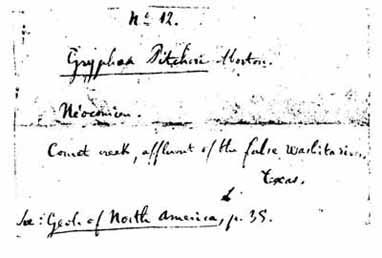 No. 12.
Gryphæa Pitcheri Morton.
Néocomien.
Comet creek, affluent of the false Washita river,
Texas.
See: Geol. of North America, p. 38.